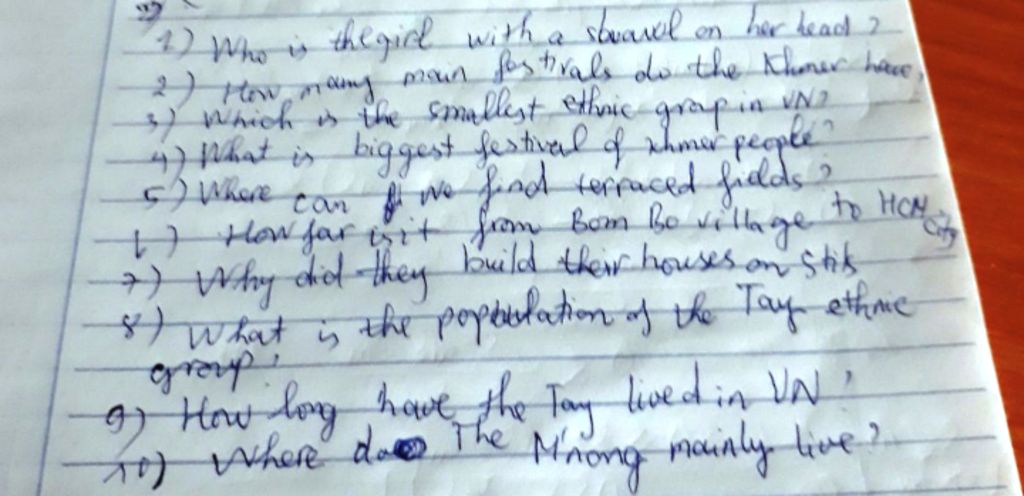 1) Who is the girl with a shawel on her head ?
2) How many main festivals do the Khmer have,
3) Which is the smallest ethnic group in VN?
4) What is biggest festival of khmer people?
5) Where can we find terraced fields ?
6) How far is it from Bom Bo village to HCM City
7) Why did they build their houses on stits
8) What is the population of the Tay ethnic
group ?
9) How long have the Tay lived in VN ?
10) Where do The M'nong mainly live ?